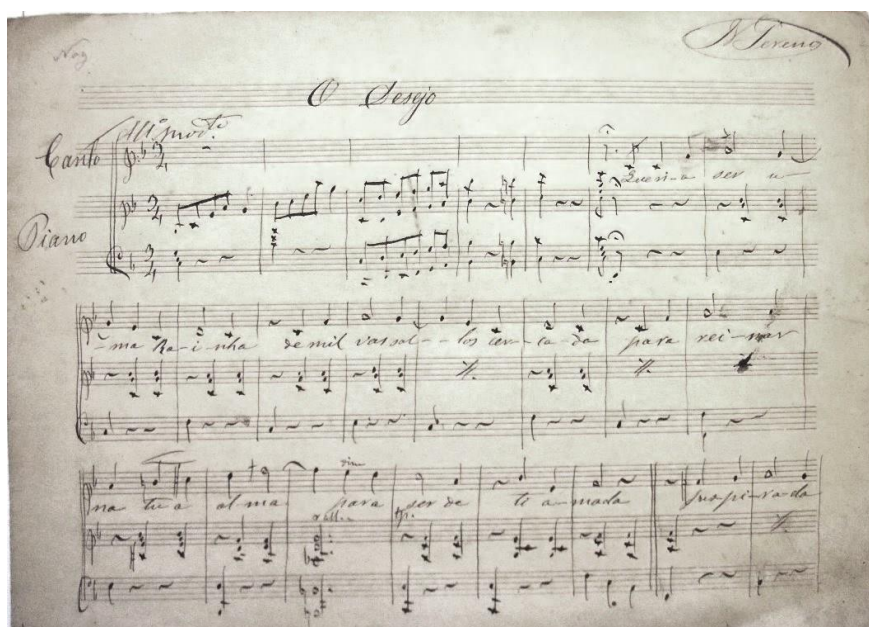 N. Tereno
O Desejo
All.º mod.to
Canto
Piano
Queri-a ser u-
-ma Ra-i-nha de mil vassal--los cer-ca-da para rei-nar
na tu-a al-ma para ser de ti a-mada Inspi-rada
dim
rall.